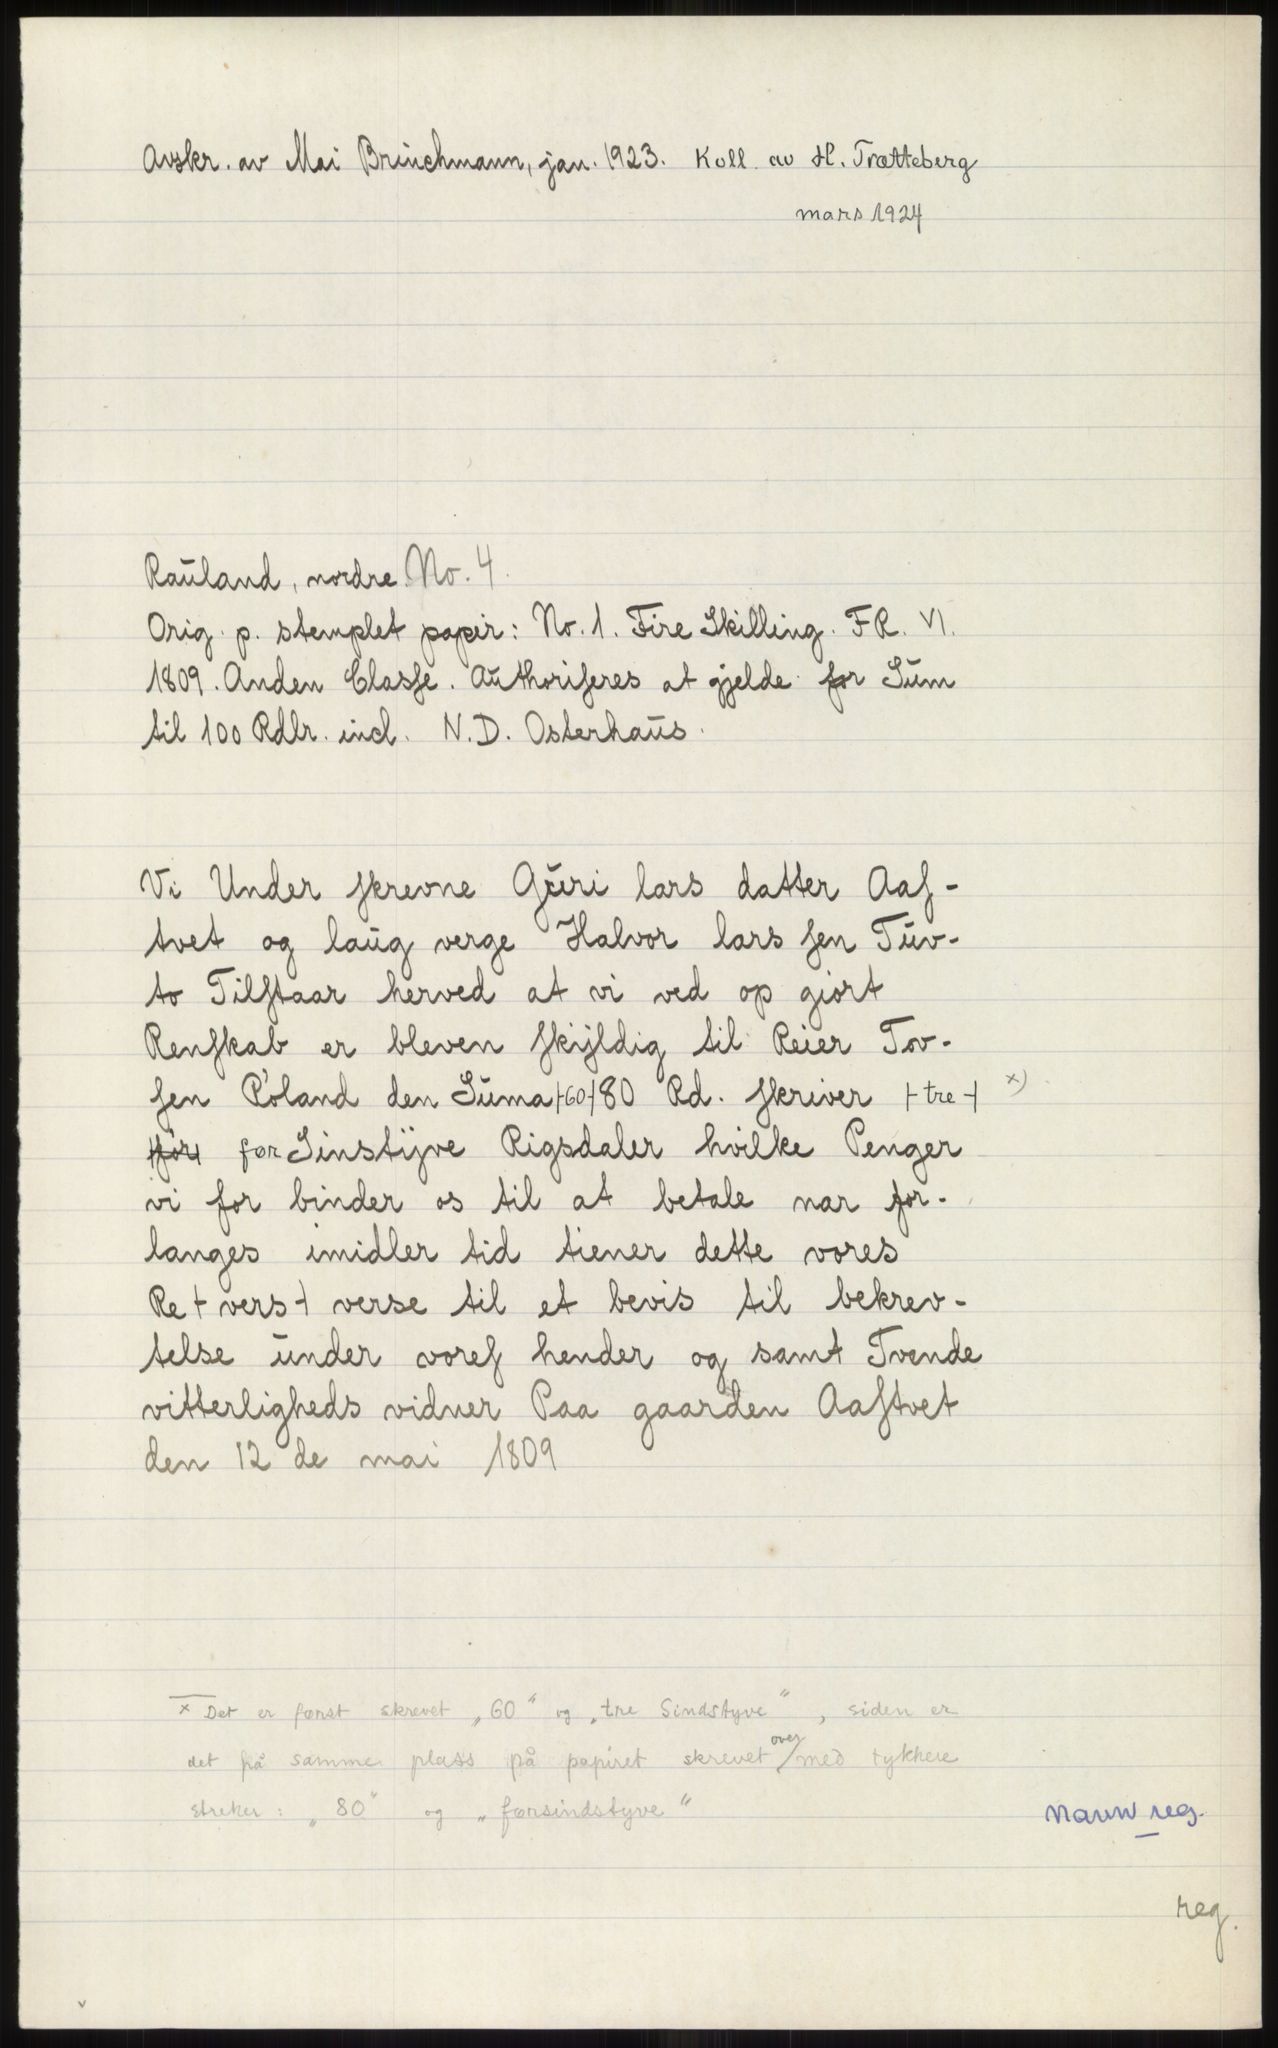 Avskr. av Mai Brinchmann, jan. 1923. Koll. av H. Trætteberg
mars 1924
Rauland, nordre No. 4.
Orig. p. stemplet papir: No. 1. Fire Skilling. FR. VI.
1809. Anden Classe. Authoriseres at gjelde for Sum
til 100 Rdlr. incl. N.D. Osterhaus.
Vi Under skrevne Guri lars datter Aas-
tvet og laug verge Halvor lars sen Tuv-
to Tilstaar herved at vi ved op giort
Renskab er bleven skÿldig til Reier Tov-
sen Roland den Suma ⊢60⊣ 80 Rd. skriver ⊢tre⊣ x)
⊢for⊣ før Sinstÿve Rigsdaler hvilke Penger
vi for binder os til at betale nar for-
langes imidler tid tiener dette vores
Re ⊢vers⊣ verse til et bevis til bekrev-
telse under vores hender og samt Tvende
vitterligheds vidner Paa gaarden Aastvet
den 12 de mai 1809
x Det er først skrevet „60“ og „tre Sindstyve“, siden er
det på samme plass på papiret skrevet over med tykkere
streker: „80“ og „førsindstyve“
navn reg.
reg.